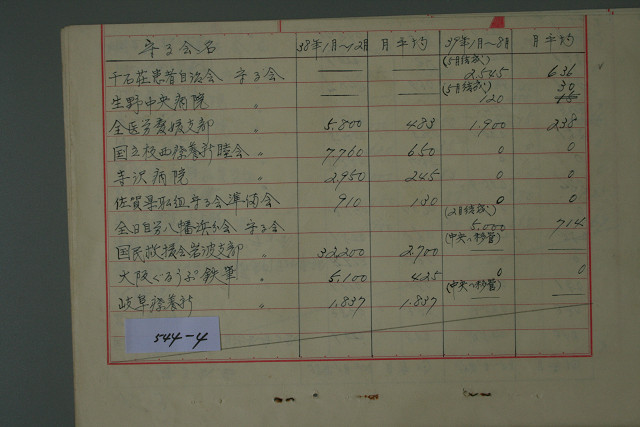 守る会名 38年1月~12月 月平均 39年1月~8月 月平均
千石荘患者自治会 守る会 — — (5月結成) 2.545 636
生野中央病院 〃 — — (5月結成) 120 30 15
全医労愛媛支部 〃 5.800 483 1.900 238
国立 西療養所睦会 〃 7.760 650 0 0
寺沢病院 〃 2.950 245 0 0
佐賀県 守る会準備会 910 130 0 0
全日自労八幡浜分会 守る会 (2月結成) 5.000 714
国民救援会岩波支部 〃 32.200 2.700 (中央へ移管) —
大阪ぐるうぷ鉄筆 〃 5.100 425 0 0
岐阜療養所 〃 1.837 1.837 (中央へ移管) — —
544-4